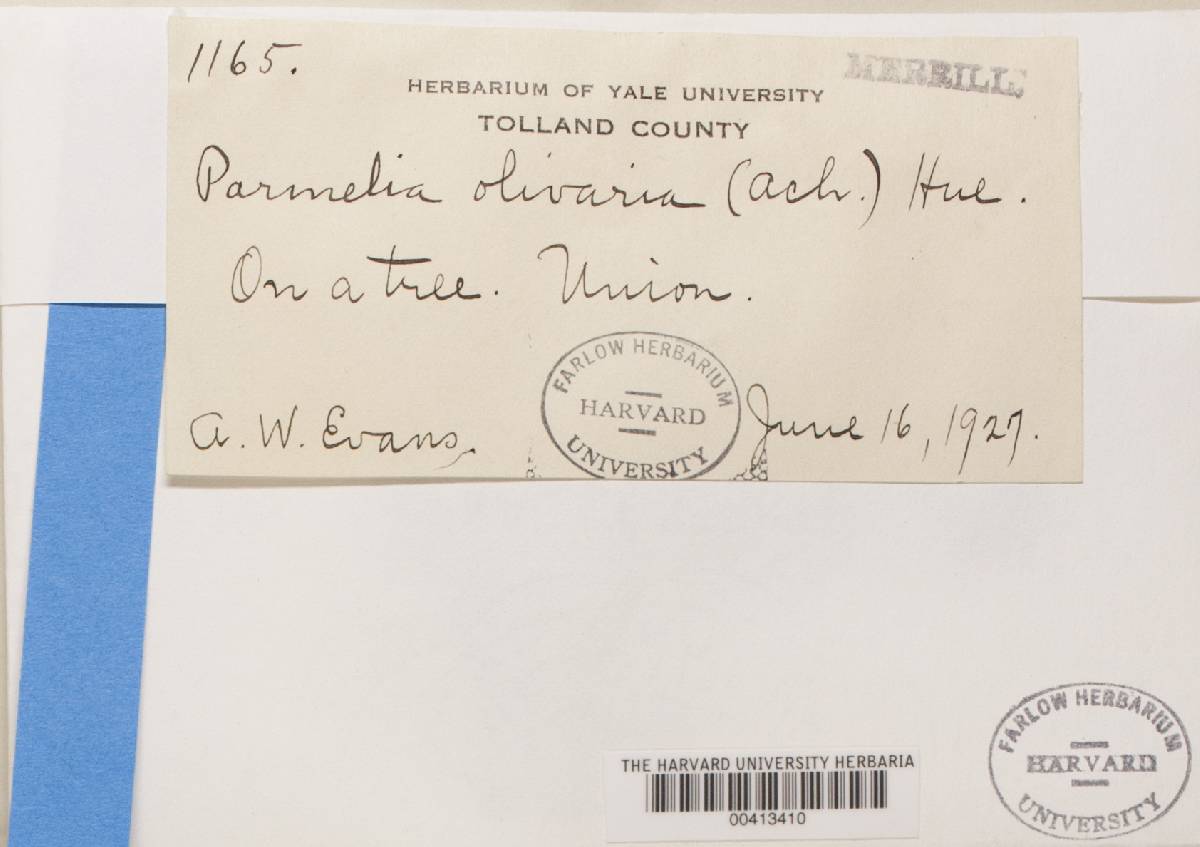 1165.
MERRILL
HERBARIUM OF YALE UNIVERSITY
TOLLAND COUNTY
Parmelia olivaria (Ach.) Hue.
On a tree. Union.
FARLOW HERBARIUM
HARVARD
UNIVERSITY
A. W. Evans.
June 16, 1927.
THE HARVARD UNIVERSITY HERBARIA
00413410
FARLOW HERBARIUM
HARVARD
UNIVERSITY